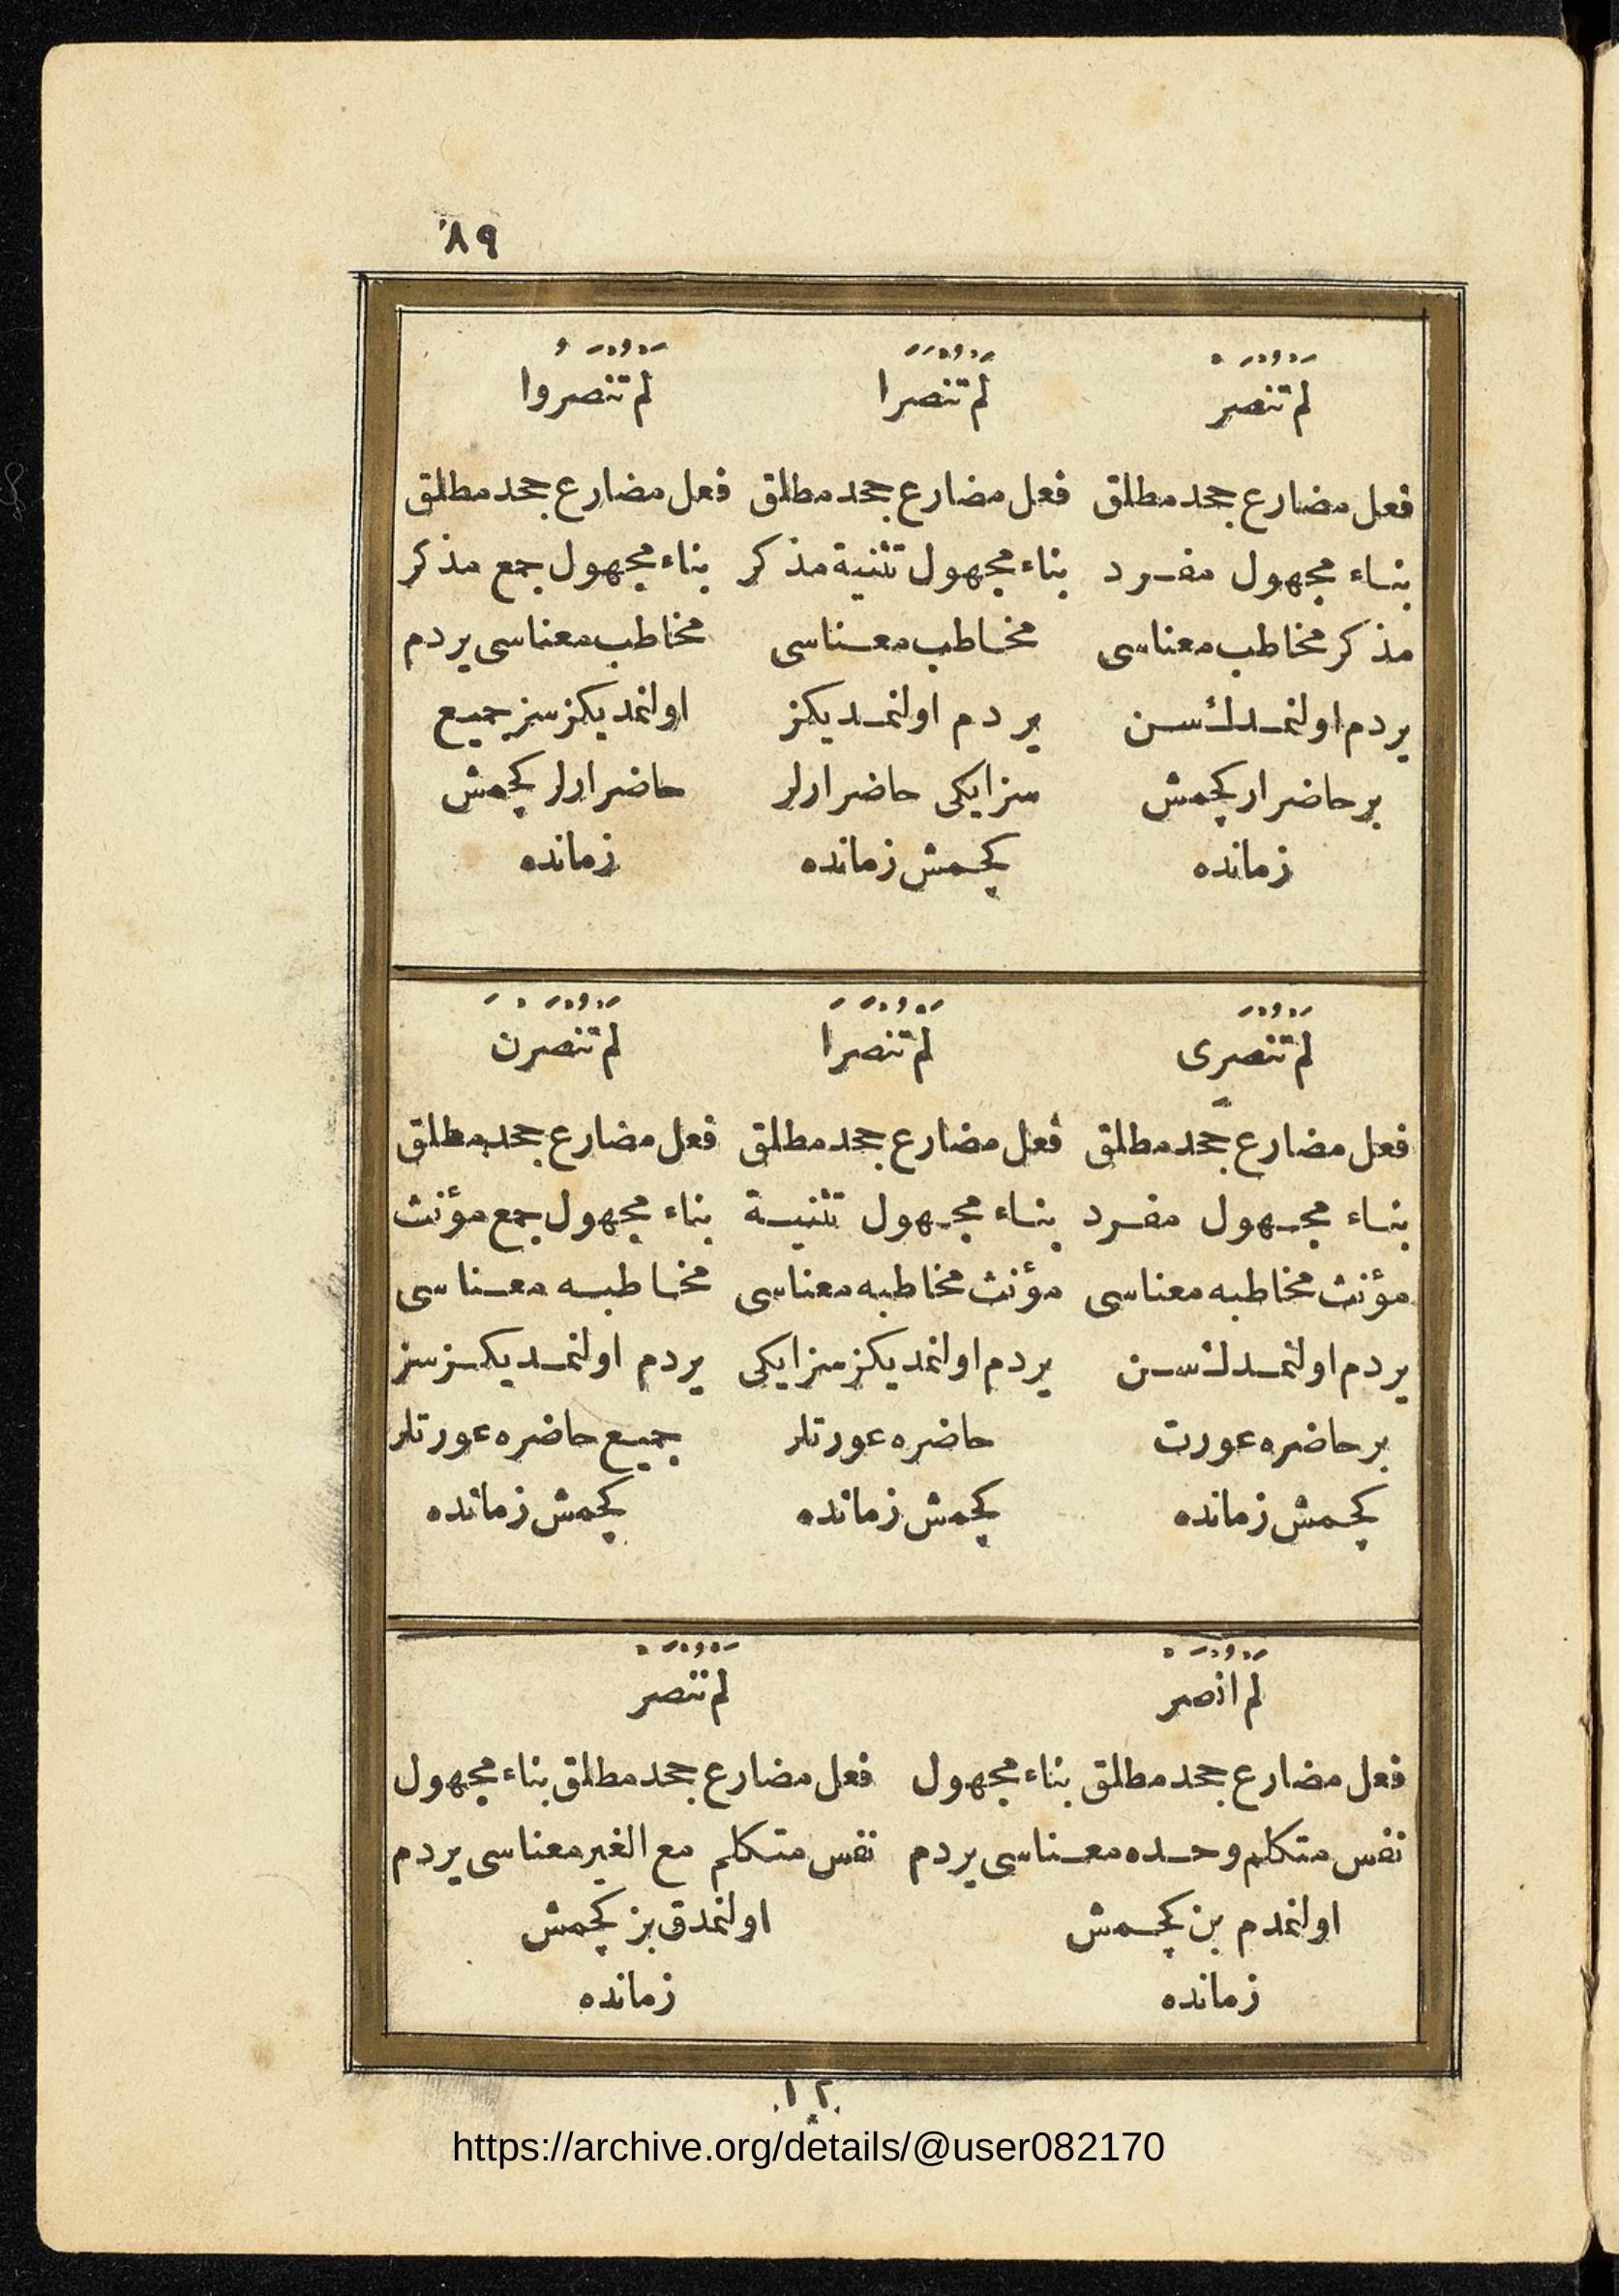 ٨٩
لَمْ تُنْصَرْ
لَمْ تُنْصَرَا
لَمْ تُنْصَرُوا
فعل مضارع جحد مطلق
بناء مجهول مفرد
مذكر مخاطب معناسى
يردم اولنمدك سن
بر حاضر ار كچمش
زمانده
فعل مضارع جحد مطلق
بناء مجهول تثنية مذكر
مخاطب معناسى
يردم اولنمديكز
سز ايكى حاضر ارلر
كچمش زمانده
فعل مضارع جحد مطلق
بناء مجهول جمع مذكر
مخاطب معناسى يردم
اولنمديكز سز جميع
حاضر ارلر كچمش
زمانده
لَمْ تُنْصَرِى
لَمْ تُنْصَرَا
لَمْ تُنْصَرْنَ
فعل مضارع جحد مطلق
بناء مجهول مفرد
مؤنث مخاطبه معناسى
يردم اولنمدك سن
بر حاضره عورت
كچمش زمانده
فعل مضارع جحد مطلق
بناء مجهول تثنية
مؤنث مخاطبه معناسى
يردم اولنمديكز سز ايكى
حاضره عورتلر
كچمش زمانده
فعل مضارع جحد مطلق
بناء مجهول جمع مؤنث
مخاطبه معناسى
يردم اولنمديكز سز
جميع حاضره عورتلر
كچمش زمانده
لَمْ اُنْصَرْ
لَمْ نُنْصَرْ
فعل مضارع جحد مطلق بناء مجهول
نفس متكلم وحده معناسى يردم
اولنمدم بن كچمش
زمانده
فعل مضارع جحد مطلق بناء مجهول
نفس متكلم مع الغير معناسى يردم
اولنمدق بز كچمش
زمانده
١٢
https://archive.org/details/@user082170